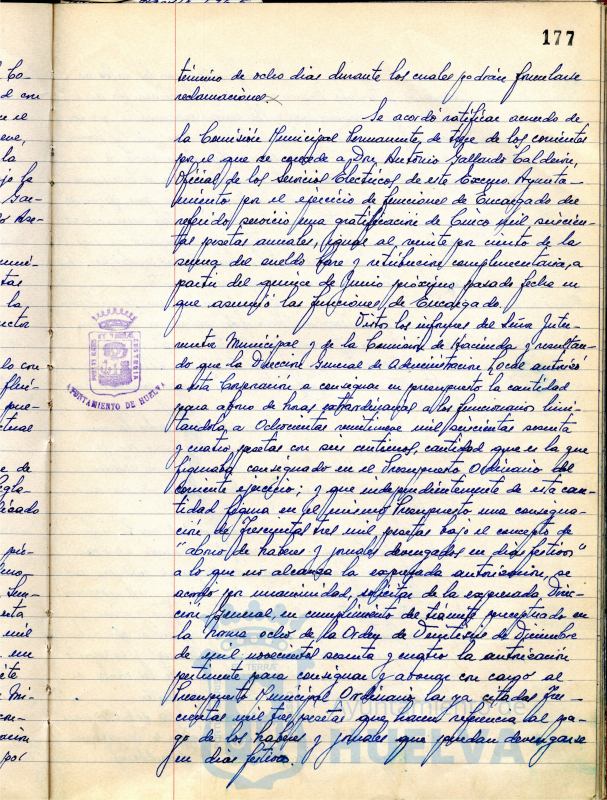 177
término de ocho dias durante los cuales podrán formularse
reclamaciones.
Se acordó ratificar acuerdo de
la Comisión Municipal Permanente, de trece de los corrientes
por el que se concede a Don Antonio Gallardo Calderón,
Oficial de los Servicios Eléctricos de este Excmo. Ayunta-
miento por el ejercicio de funciones de Encargado del
referido servicio una gratificación de Cinco mil
pesetas anuales, igual al veinte por ciento de la
suma del sueldo base y retribucion complementaria, a
partir del quince de Junio próximo pasado fecha en
que asumió las funciones de Encargado.
Vistos los informes del Señor Inter-
ventor Municipal y de la Comisión de Hacienda y resultan-
do que la Dirección General de Administración Local autorizó
a esta Corporación a consignar en presupuesto la cantidad
para abono de horas extraordinarias a los funcionarios limi-
tandola a Ochocientas mil seiscientas sesenta
y cuatro pesetas con seis centimos, cantidad que es la que
figuraba consignado en el Presupuesto Ordinario del
corriente ejercicio; y que independientemente de esta can-
tidad figura en el mismo Presupuesto una consigna-
ción de Trescientas tres mil pesetas bajo el concepto de
"abono de haberes y jornales devengados en dias festivos"
a lo que no alcanza la expresada autorización, se
acordó por unanimidad, solicitar de la expresada Direc-
ción General, en cumplimiento del trámite preceptuado en
la norma octava de la Orden de Veintiseis de Diciembre
de mil novecientos sesenta y cuatro la autorización
pertinente para consignar y abonar con cargo al
Presupuesto Municipal Ordinario las ya citadas Tres-
cientas mil tres pesetas que hacen referencia al pa-
go de los haberes y jornales que puedan devengarse
en dias festivos.
AYUNTAMIENTO DE HUELVA
Ayuntamiento de
HUELVA